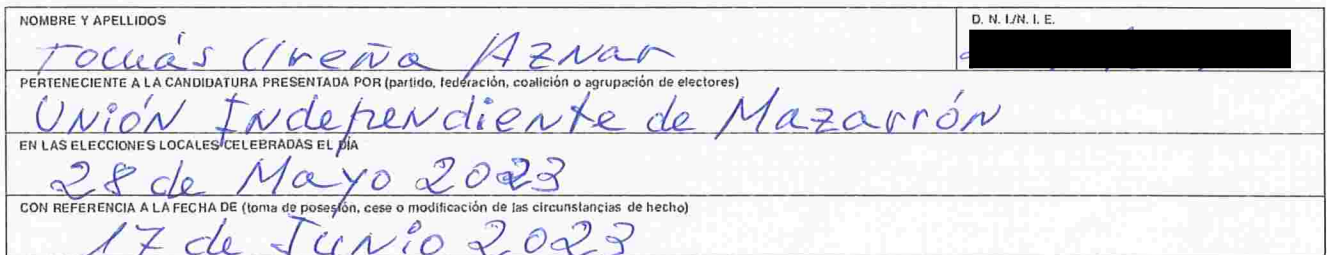 NOMBRE Y APELLIDOS
D. N. I./N. I. E.
Tomás Ureña Aznar
PERTENECIENTE A LA CANDIDATURA PRESENTADA POR (partido, federación, coalición o agrupación de electores)
UNIÓN INdepeNdieNte de Mazarrón
EN LAS ELECCIONES LOCALES CELEBRADAS EL DÍA
28 de Mayo 2023
CON REFERENCIA A LA FECHA DE (toma de posesión, cese o modificación de las circunstancias de hecho)
17 de JuNio 2023